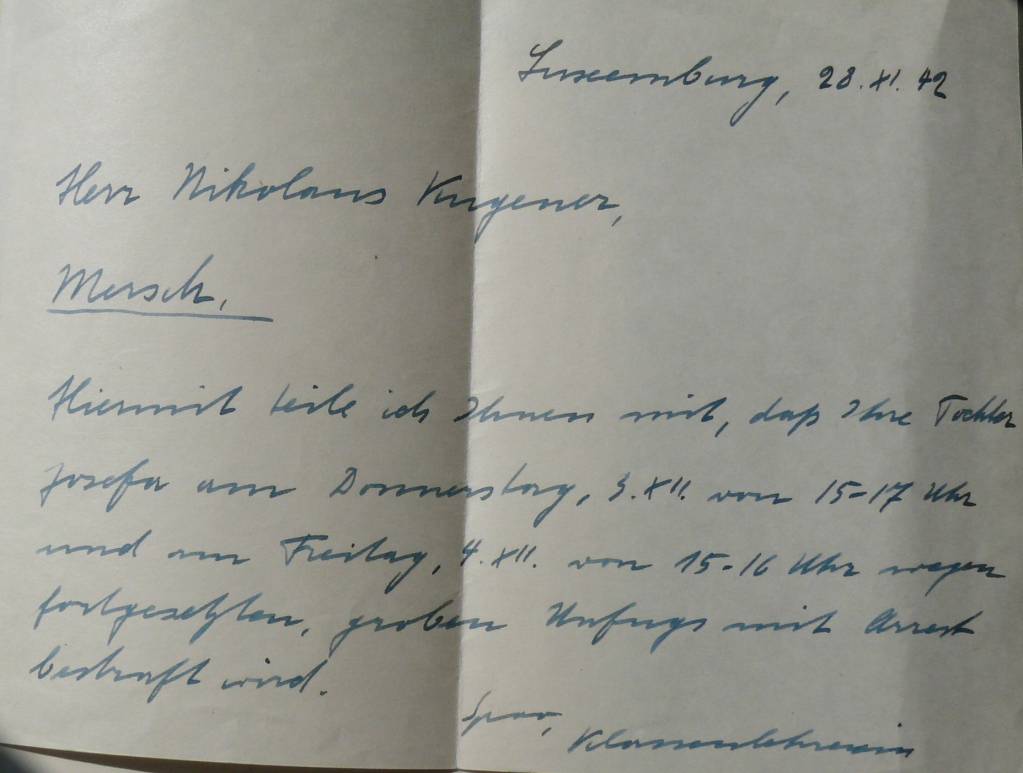 Luxemburg, 28.XI.42
Herr Nikolaus Kugener,
Mersch.
Hiermit teile ich Ihnen mit, daß Ihre Tochter
Josefa am Donnerstag, 3.XII. von 15-17 Uhr
und am Freitag, 4.XII. von 15-16 Uhr wegen
fortgesetzten, groben Unfugs mit Arrest
bestraft wird.
Klassenlehrerin